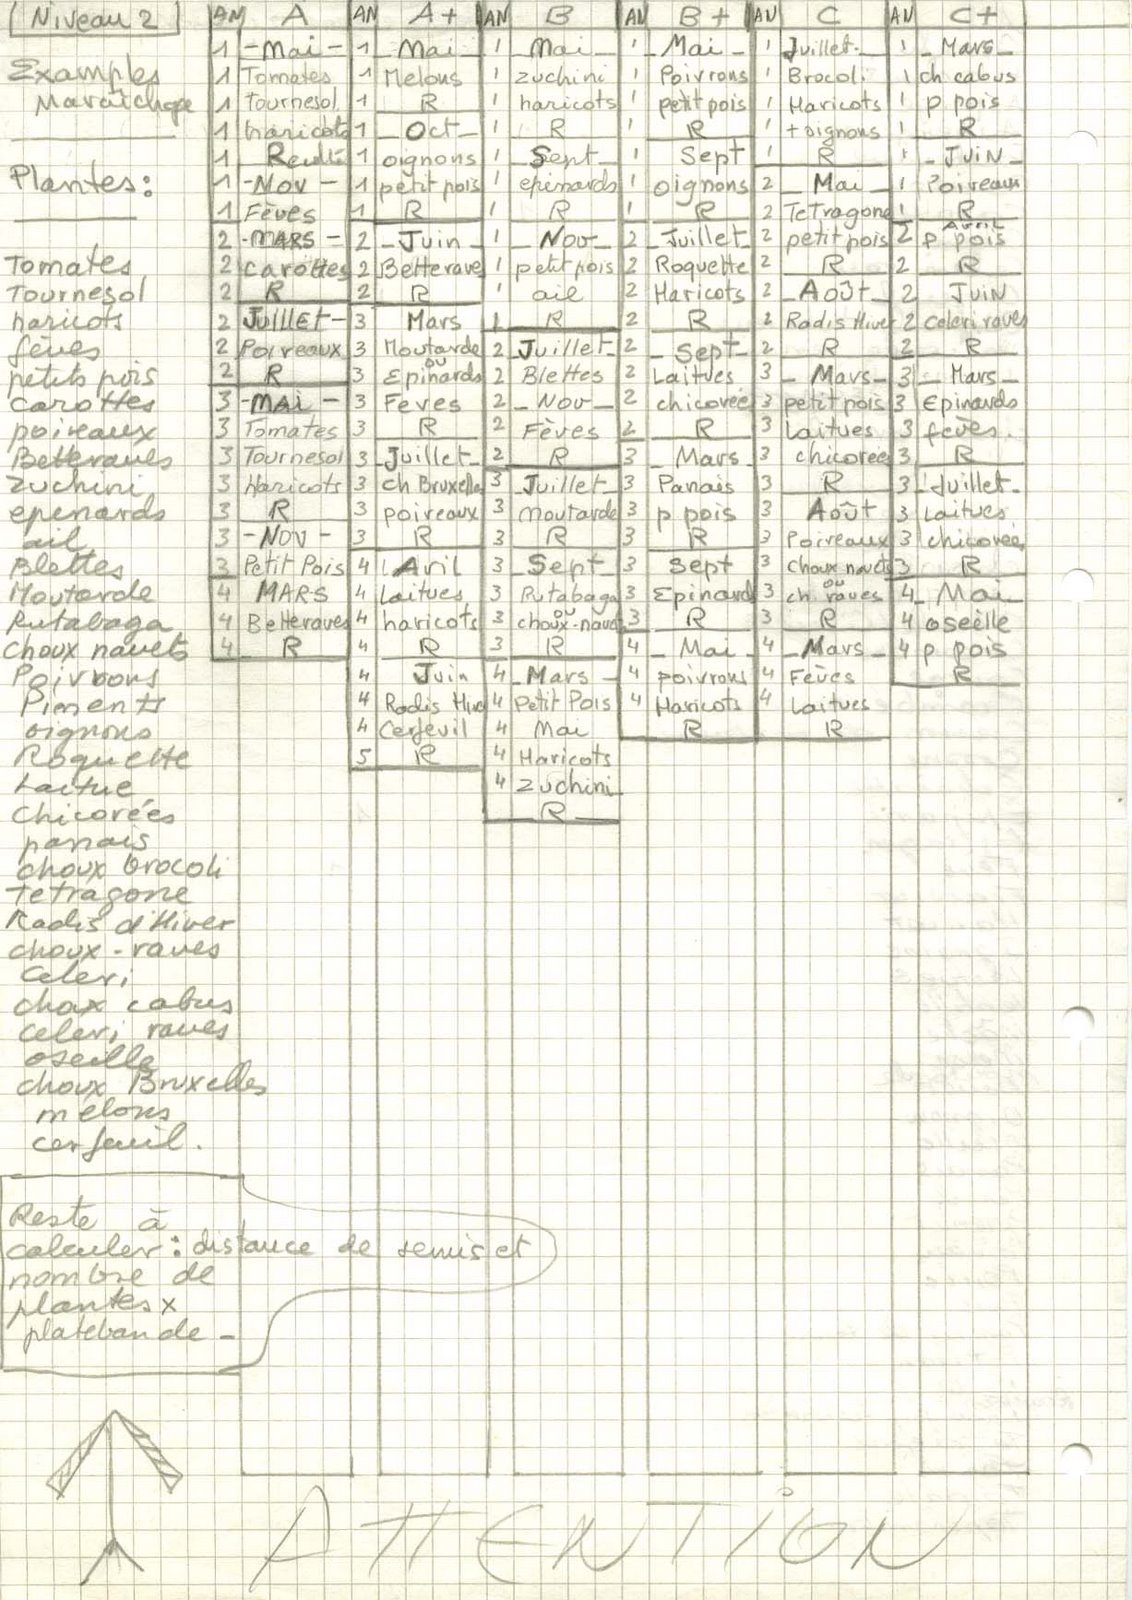 Niveau 2
Examples
Maraîchage
Plantes:
Tomates
Tournesol
haricots
fèves
petits pois
Carottes
poireaux
Betteraves
Zuchini
epenards
ail
Blettes
Moutarde
Rutabaga
Choux navets
Poivrons
Piments
oignons
Roquette
Laitue
Chicorées
panais
choux brocoli
Tetragone
Radis d'Hiver
choux-raves
Celeri
choux cabus
Celeri raves
oseille
choux Bruxelles
melons
cerfeuil.
Reste à
calculer: distance de semis et
nombre de
plantes x
platebande-
AN A
1 -Mai-
1 Tomates
1 Tournesol
1 haricots
1
1 -Nov-
1 Fèves
2 -MARS-
2 Carottes
2 R
2 JUILLET-
2 Poireaux
2 R
3 -MAI-
3 Tomates
3 Tournesol
3 Haricots
3 R
3 -Nov-
3 Petit Pois
4 MARS
4 Betteraves
4 R
AN A+
1 Mai
1 Melons
1 R
1 Oct
1 oignons
1 petit pois
1 R
2 Juin
2 Betterave
2 R
3 Mars
3 Moutarde
ou
3 Epinards
3 Feves
3 R
3 Juillet
3 ch Bruxelle
3 poireaux
3 R
4 Avril
4 Laitues
4 haricots
4 R
4 Juin
4 Radis Hive
4 Cerfeuil
5 R
AN B
1 Mai
1 zuchini
1 haricots
1 R
1 Sept
1 epinards
1 R
1 Nov
1 petit pois
1 ail
1 R
2 Juillet
2 Blettes
2 Nov
2 Fèves
2 R
3 Juillet
3 moutarde
3 R
3 Sept
3 Rutabaga
ou
3 choux-nave
3 R
4 Mars
4 Petit Pois
4 Mai
4 Haricots
4 Zuchini
R
AN B+
1 Mai
1 Poivrons
1 petit pois
1 R
1 Sept
1 oignons
1 R
2 Juillet
2 Roquette
2 Haricots
2 R
2 Sept
2 Laitues
2 chicorée
2 R
3 Mars
3 Panais
3 p pois
3 R
3 Sept
3 Epinard
3 R
4 Mai
4 poivrons
4 Haricots
R
AN C
1 Juillet
1 Brocoli
1 Haricots
1 + oignons
1 R
2 Mai
2 Tetragone
2 petit pois
2 R
2 Août
2 Radis Hiver
2 R
3 Mars
3 petit pois
3 Laitues
3 chicoree
3 R
3 Août
3 Poireaux
3 choux navets
ou
3 ch raves
3 R
4 Mars
4 Fèves
4 Laitues
R
AN C+
1 Mars
1 ch cabus
1 p pois
1 R
1 JUIN
1 Poireaux
1 R
AVRIL
2 p pois
2 R
2 JUIN
2 Celeri raves
2 R
3 Mars
3 Epinards
3 fèves.
3 R
3 Juillet
3 Laitues
3 chicorée
3 R
4 Mai
4 oseille
4 p pois
R
ATTENTION